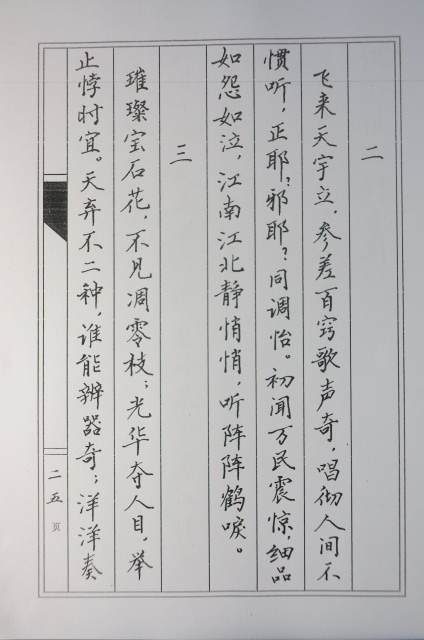 二
飞来天宇立，参差百窍歌声奇，唱彻人间不
惯听，正耶？邪耶？同调怡。初闻万民震惊，细品
如怨如泣，江南江北静悄悄，听阵阵鹤唳。
三
璀璨宝石花，不见凋零枝；光华夺人目，举
止悖时宜。天弃不二种，谁能辨器奇；洋洋奏
二五页